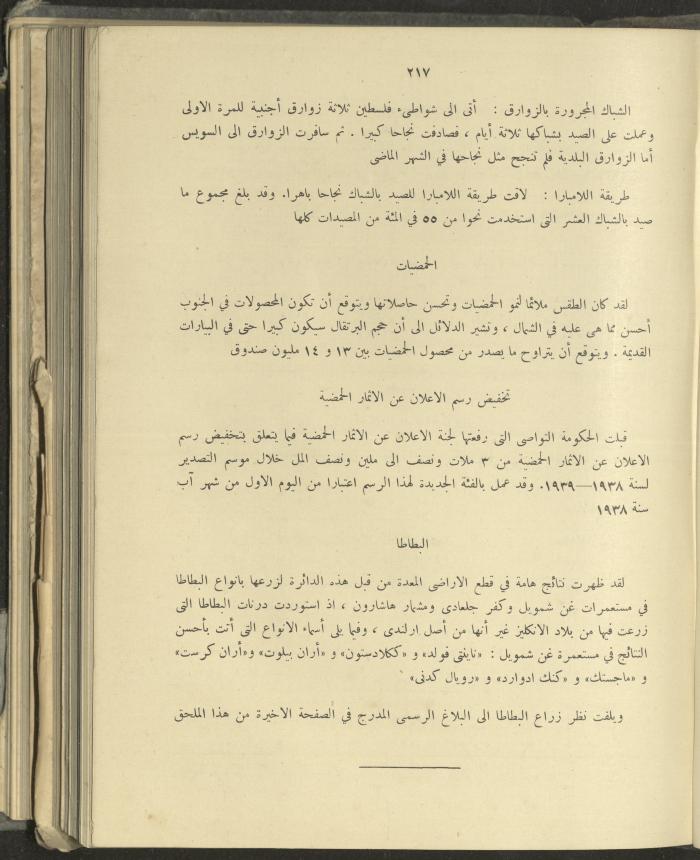 ٢١٧
الشباك المجرورة بالزوارق : أتى الى شواطىء فلسطين ثلاثة زوارق أجنبية للمرة الاولى
وعملت على الصيد بشباكها ثلاثة أيام ، فصادفت نجاحا كبيرا . ثم سافرت الزوارق الى السويس
أما الزوارق البلدية فلم تنجح مثل نجاحها في الشهر الماضى
طريقة اللامبارا : لاقت طريقة اللامبارا للصيد بالشباك نجاحا باهرا. وقد بلغ مجموع ما
صيد بالشباك العشر التى استخدمت نحوا من ٥٥ في المئة من المصيدات كلها
الحمضيات
لقد كان الطقس ملائما لنمو الحمضيات وتحسن حاصلاتها ويتوقع أن تكون المحصولات في الجنوب
أحسن مما هى عليه في الشمال ، وتشير الدلائل الى أن حجم البرتقال سيكون كبيرا حتى في البيارات
القديمة . ويتوقع أن يتراوح ما يصدر من محصول الحمضيات بين ١٣ و ١٤ مليون صندوق
تخفيض رسم الاعلان عن الاثمار الحمضية
قبلت الحكومة التواصى التى رفعتها لجنة الاعلان عن الاثمار الحمضية فيما يتعلق بتخفيض رسم
الاعلان عن الاثمار الحمضية من ٣ ملات ونصف الى ملين ونصف المل خلال موسم التصدير
لسنة ١٩٣٨—١٩٣٩. وقد عمل بالفئة الجديدة لهذا الرسم اعتبارا من اليوم الاول من شهر آب
سنة ١٩٣٨
البطاطا
لقد ظهرت نتائج هامة في قطع الاراضى المعدة من قبل هذه الدائرة لزرعها بانواع البطاطا
في مستعمرات غن شمويل وكفر جلعادى ومشمار هاشارون ، اذ استوردت درنات البطاطا التى
زرعت فيها من بلاد الانكليز غير أنها من أصل ارلندى ، وفيما يلى أسماء الانواع التى أتت بأحسن
النتائج في مستعمرة غن شمويل : «نايفتى فولد» و «ككلادستون» و «أران بيلوت» و«أران كرست»
و «ماجستك» و «كنك ادوارد» و «رويال كدنى»
ويلفت نظر زراع البطاطا الى البلاغ الرسمى المدرج في الصفحة الاخيرة من هذا الملحق